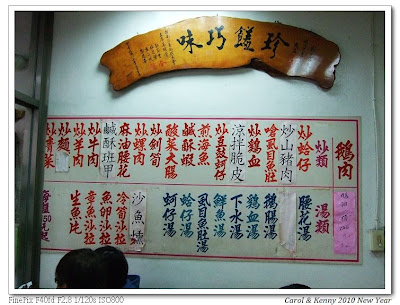 珍饍巧味
鵝肉
炒類
炒蛤仔
炒山豬肉
嗆虱目魚肚
炒雞血
涼拌脆皮
炒豆豉蚵仔
煎海魚
鹹酥蝦
酸菜大腸
炒劍筍
炒螺肉
麻油腰花
鹹酥班甲
炒牛肉
炒羊肉
炒麵
炒青菜
湯類
腰花湯
鵝腸湯
雞血湯
下水湯
鮮魚湯
虱目魚肚湯
蛤仔湯
蚵仔湯
沙魚燻
冷筍沙拉
魚卵沙拉
章魚沙拉
生魚片
FinePix F40fd F2.8 1/120s ISO800
Carol & Kenny 2010 New Year